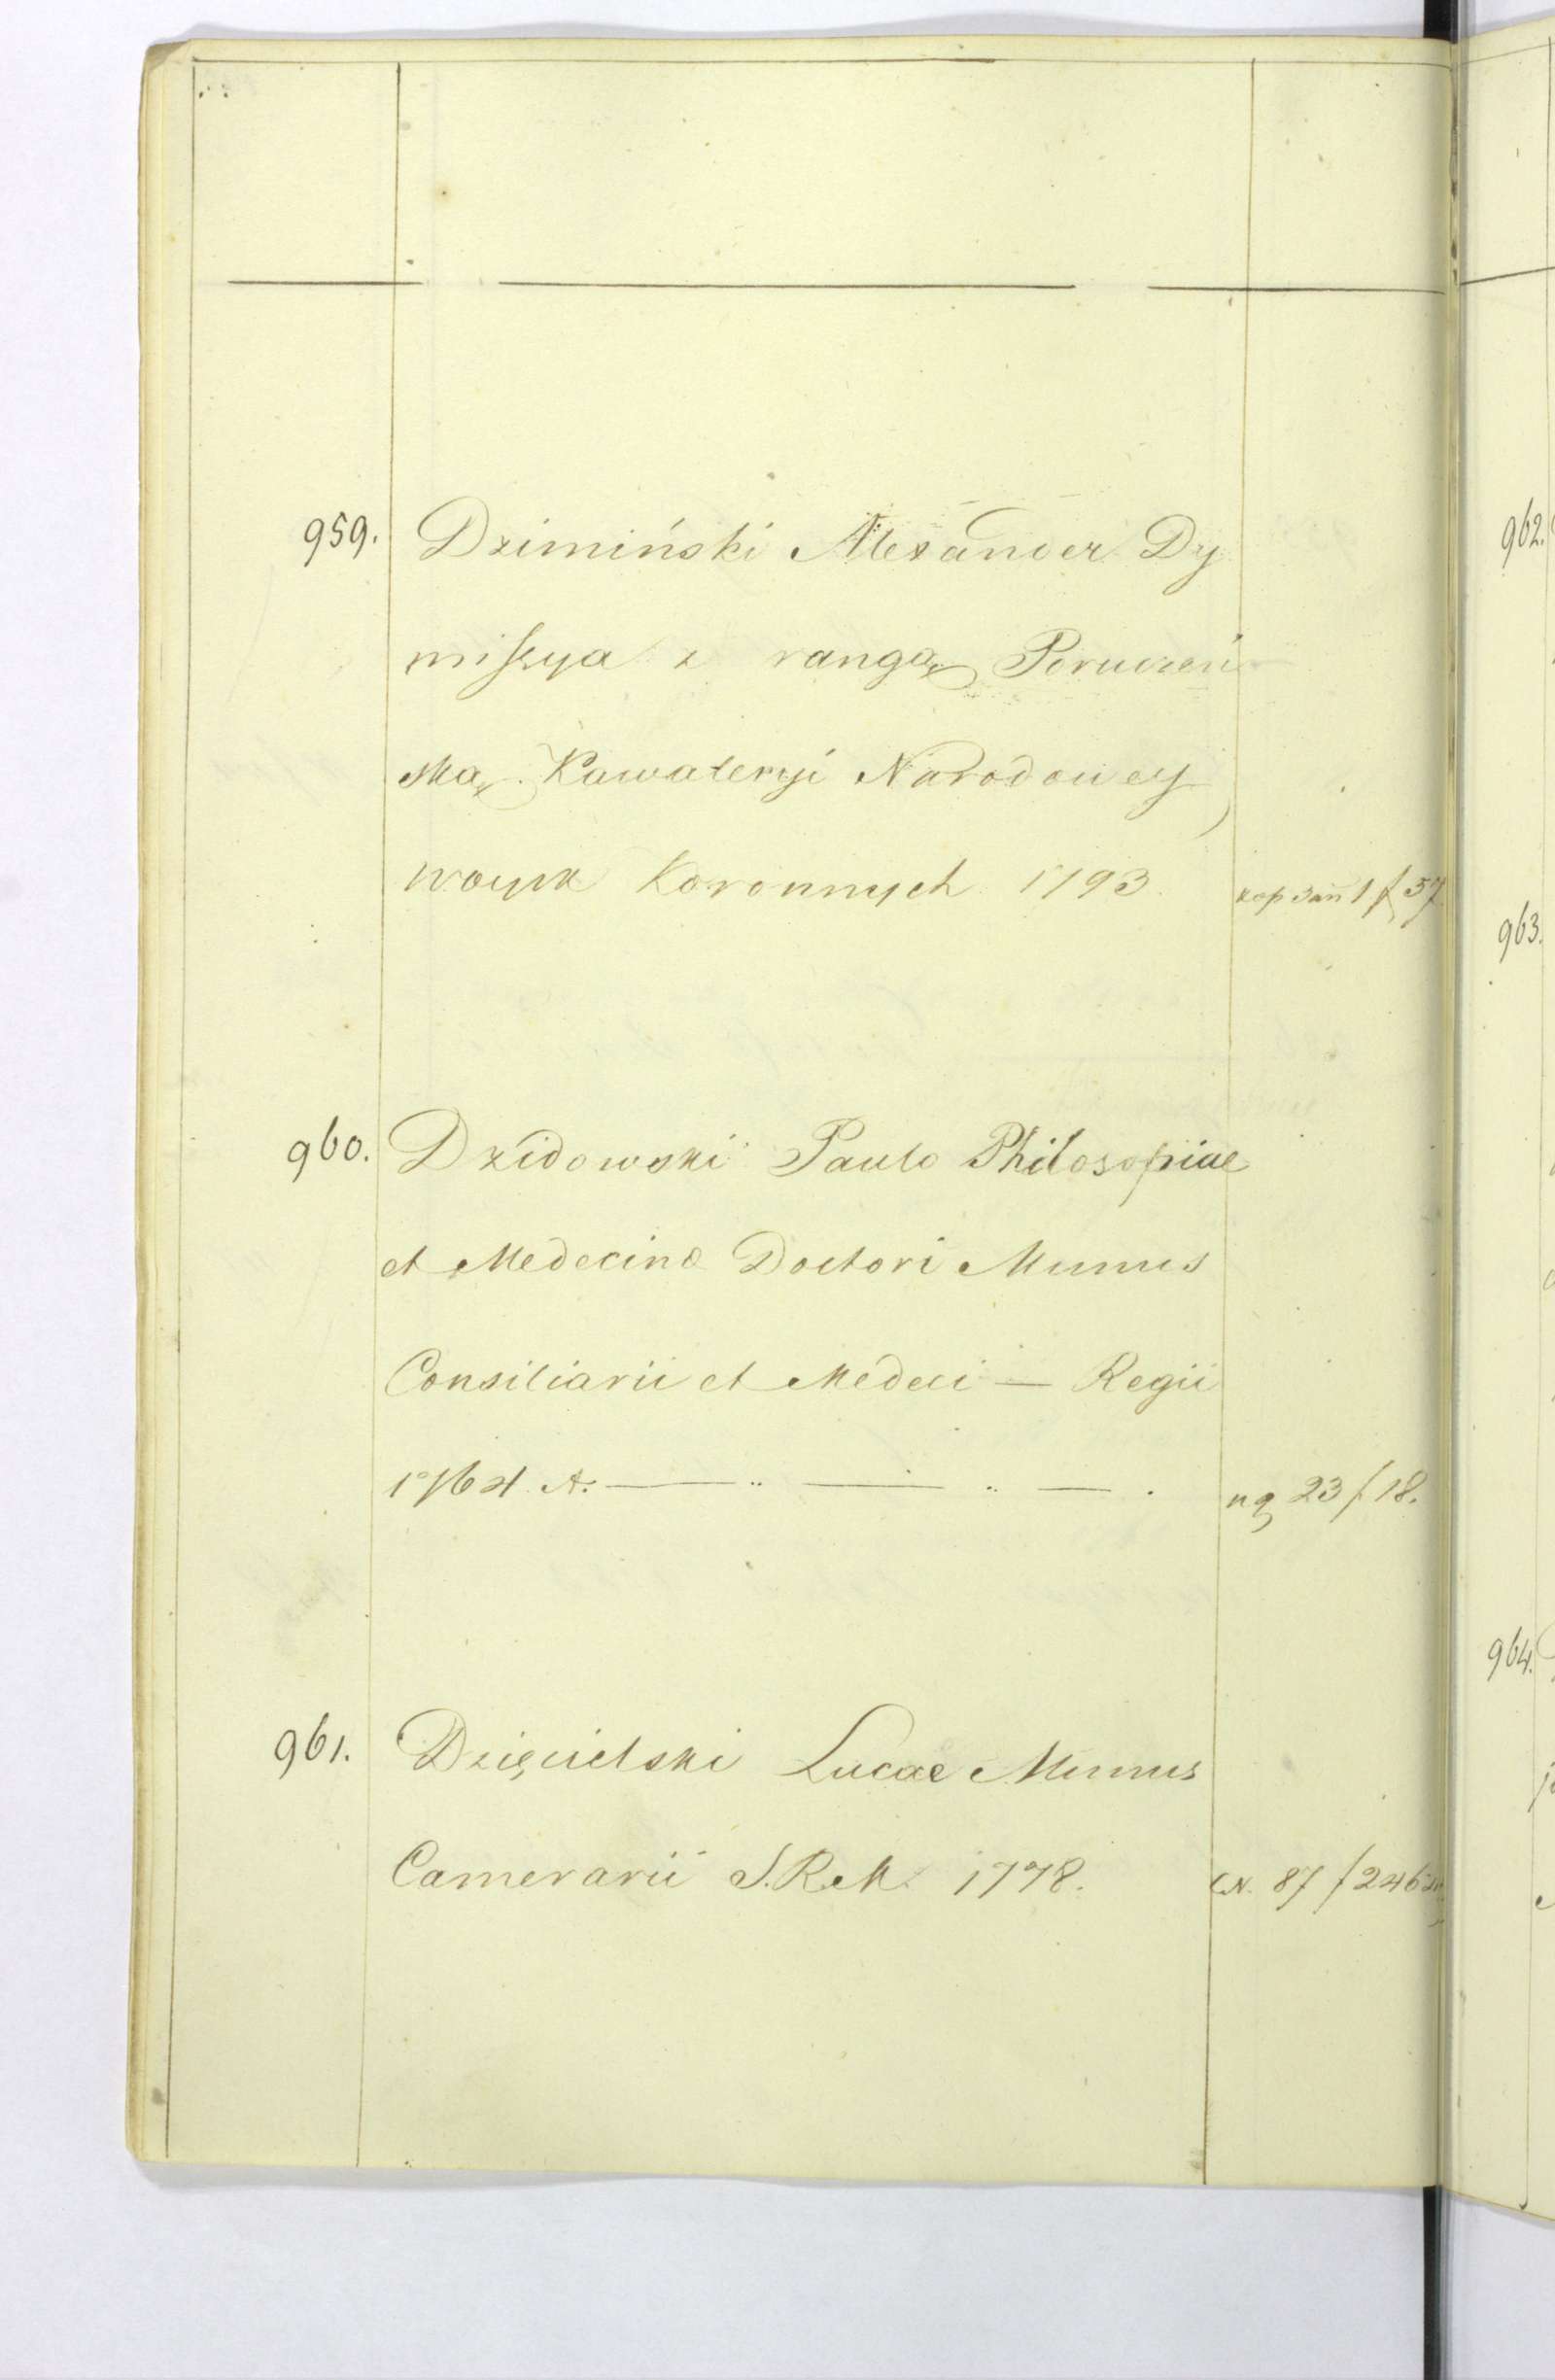 959. Dzimiński Alexander Dy
missya z rangą Poruczeń
ską Kawaleryi Narodowey
woysk Koronnych 1793 кор зап 1 f 57
960. Dzidowski Paulo Philosopiae
et Medecinæ Doctori Munus
Consiliarii et Medeci — Regii
1764 A. — „ — „ — . 23 f 18.
961. Dzięcielski Lucae Munus
Camerarii S.R.M. 1778. 87 f 246
962.
963.
964.